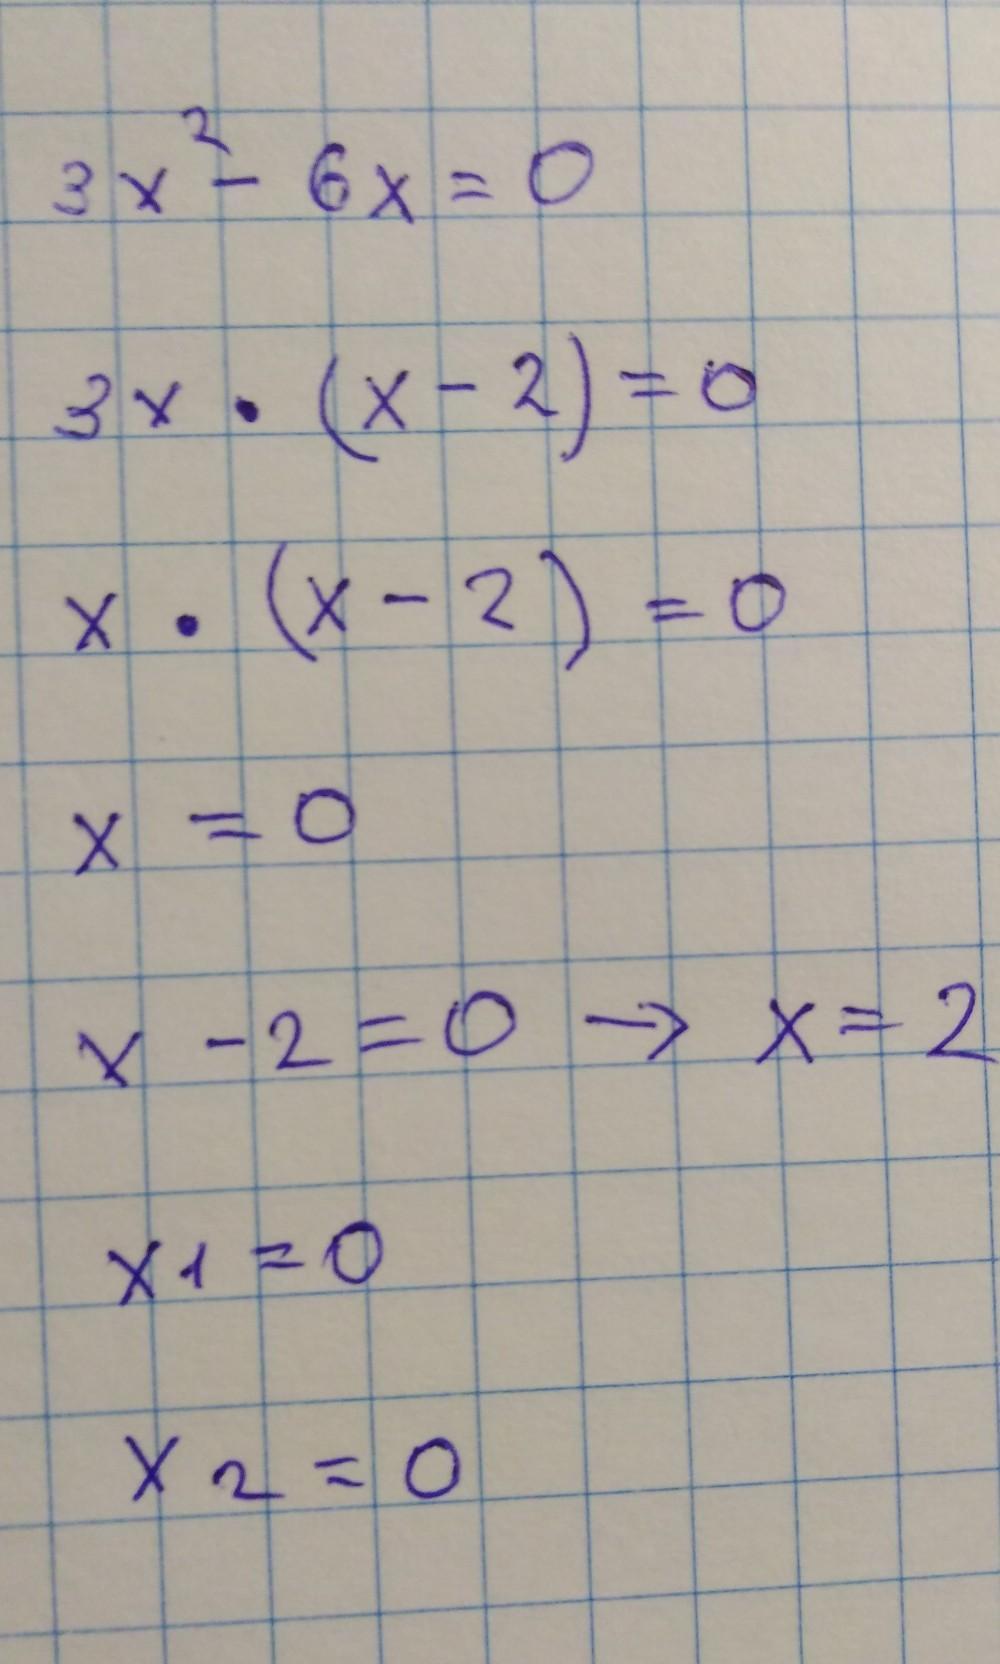 3x² - 6x = 0
3x • (x - 2) = 0
x • (x - 2) = 0
x = 0
x - 2 = 0 → x = 2
x1 = 0
x2 = 0